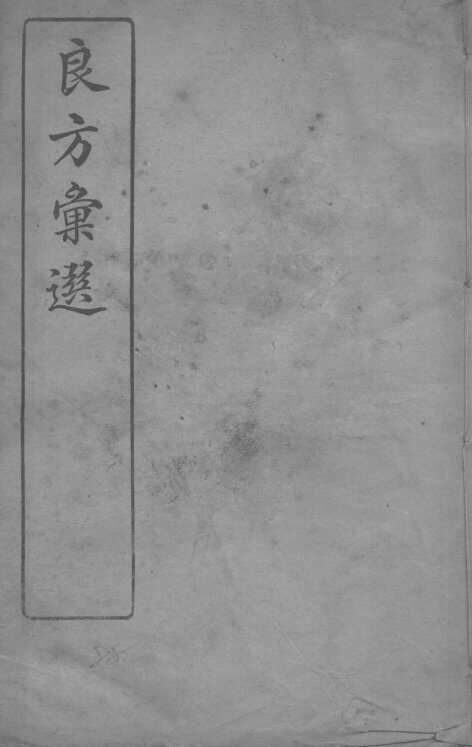 良方彙選